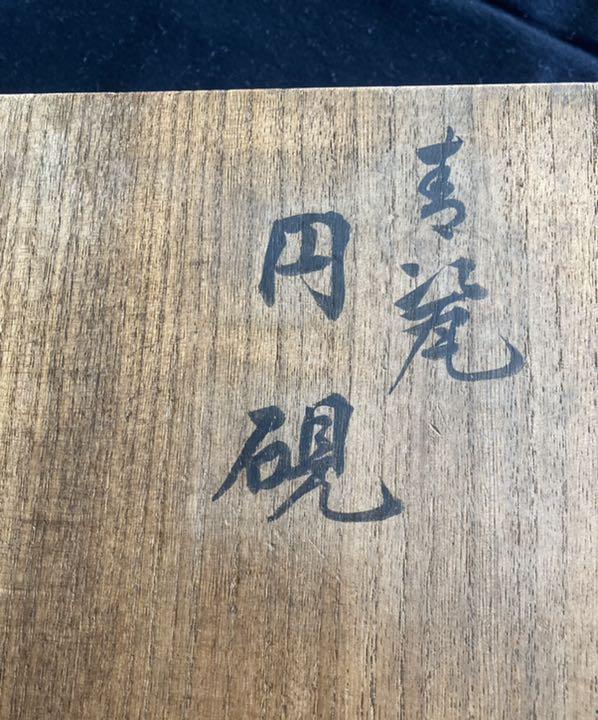 青瓷
円硯